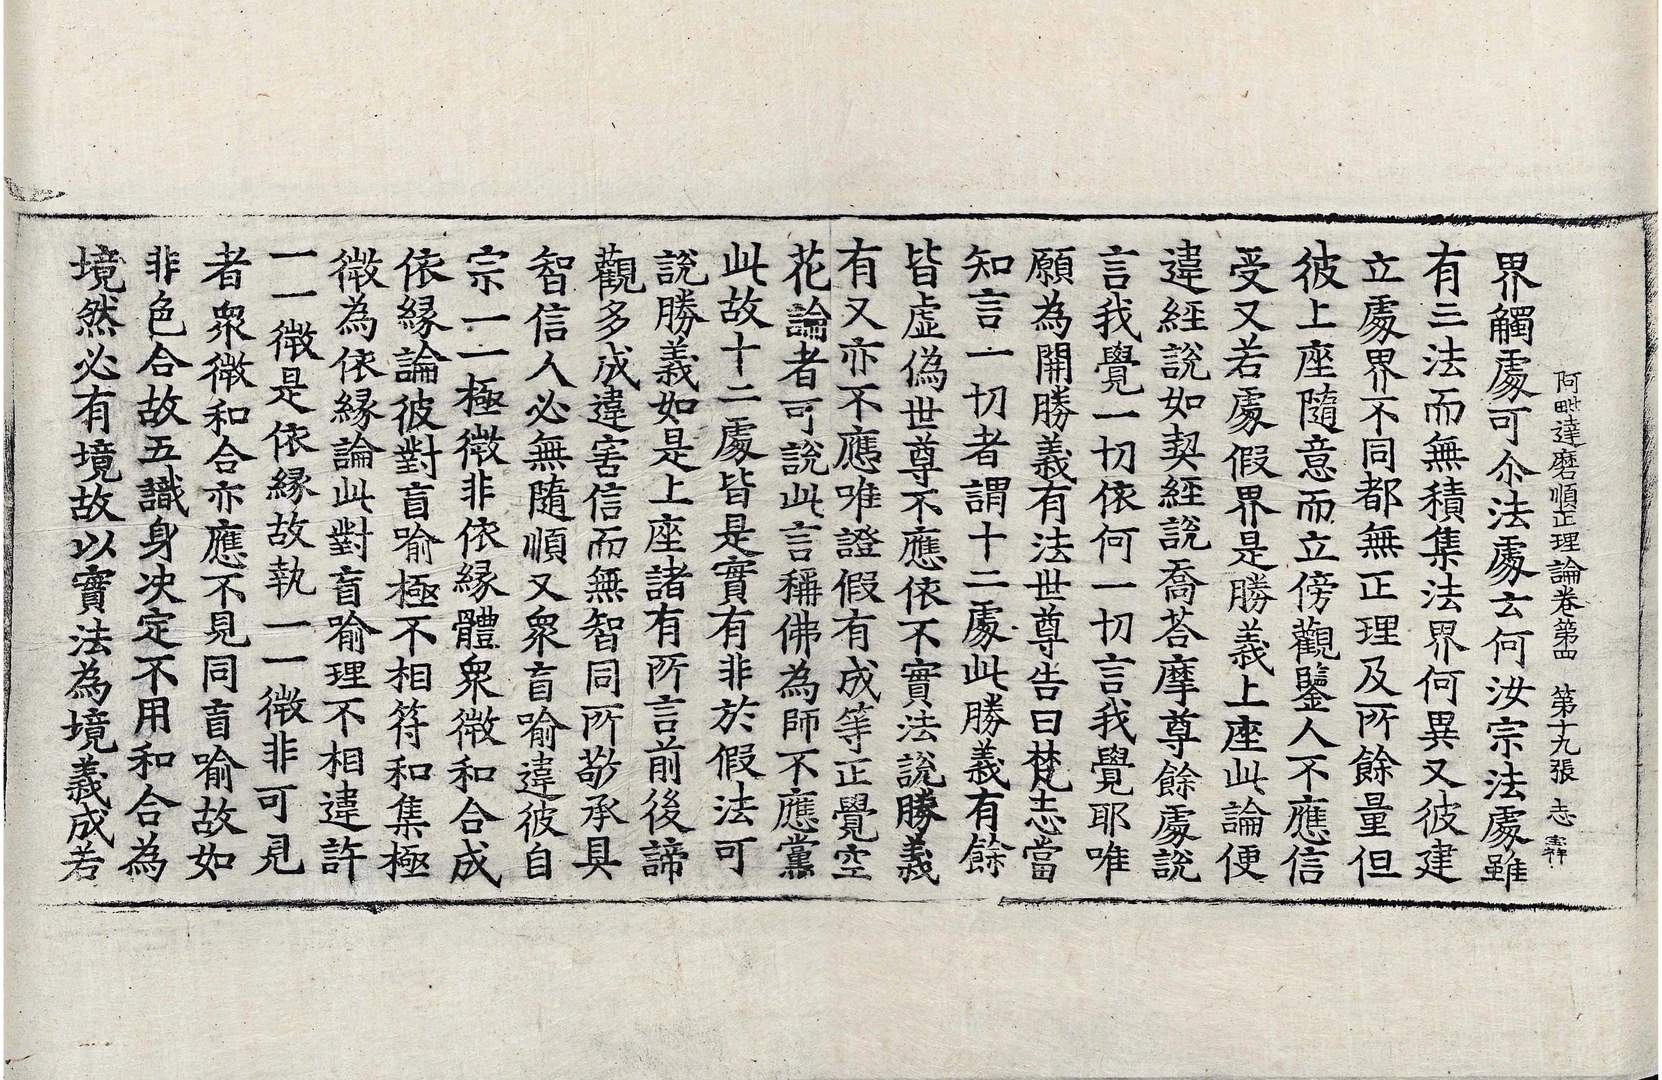 阿毗達磨順正理論卷第四 第十九張 志
界觸處可尒法處云何汝宗法處雖
有三法而無積集法界何異又彼建
立處界不同都無正理及所餘量但
彼上座隨意而立傍觀鑒人不應信
受又若處假界是勝義上座此論便
違經說如契經說喬荅摩尊餘處說
言我覺一切依何一切言我覺耶唯
願為開勝義有法世尊告曰梵志當
知言一切者謂十二處此勝義有餘
皆虛偽世尊不應依不實法說勝義
有又亦不應唯證假有成等正覺空
花論者可說此言稱佛為師不應黨
此故十二處皆是實有非於假法可
說勝義如是上座諸有所言前後諦
觀多成違害信而無智同所敬承具
智信人必無隨順又眾盲喻違彼自
宗一一極微非依緣體眾微和合成
依緣論彼對盲喻極不相符和集極
微為依緣論此對盲喻理不相違許
一一微是依緣故執一一微非可見
者眾微和合亦應不見同盲喻故如
非色合故五識身決定不用和合為
境然必有境故以實法為境義成若